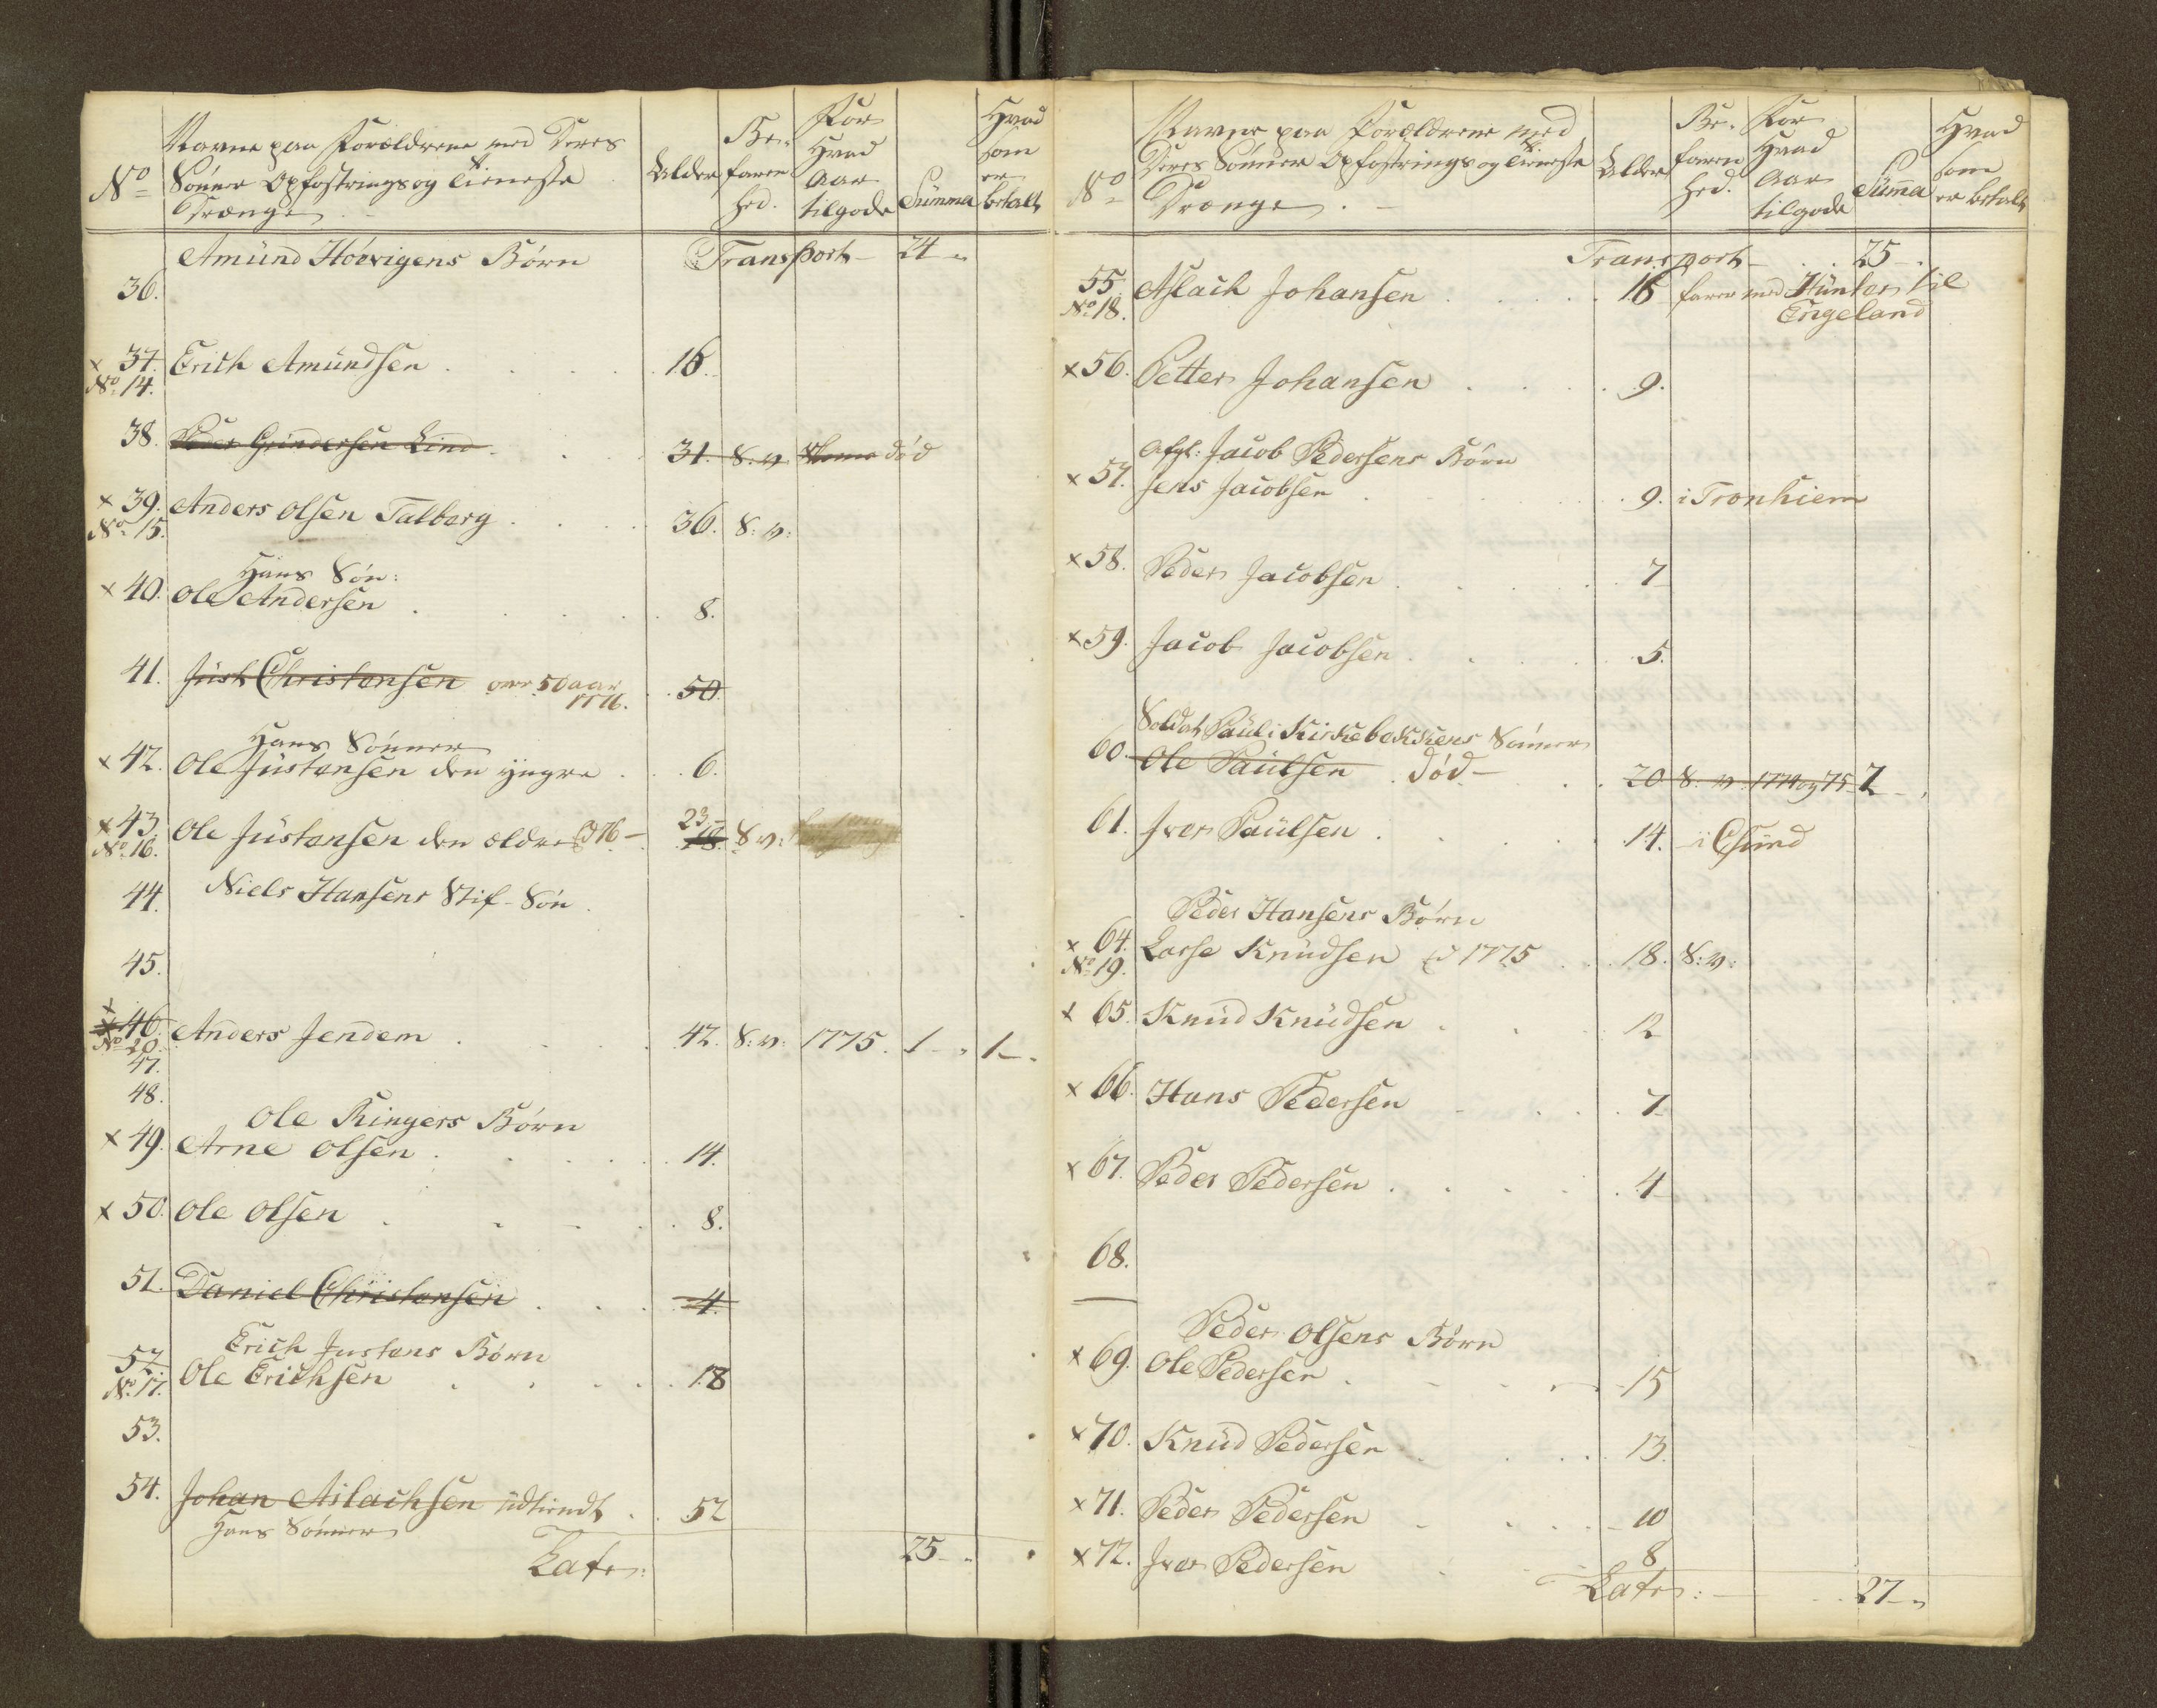 No
Navne paa Forældrene med Deres
Sønner Opfostrings og Tieneste
Drænge
Alder
Be-
faren
hed.
For
Hvad
Aar
tilgode
Summa
Hvad
som
er
betalt
Amund Høvrigens Børn Transport 24
36.
x 37. Erich Amundsen 16.
No 14.
38. Peder Grindersen Lind 31. S: v. død
x 39. Anders Olsen Talberg 36. S: v:
No 15.
Hans Søn:
x 40. Ole Andersen 8.
41. Just Christensen over 50 aar 50
1776.
Hans Sønner
x 42. Ole Justensen den yngre 6.
x 43. Ole Justensen den ældre 23 18. S: v:
No 16.
44. Niels Hansens Stif-Søn
45.
x 46. Anders Jendem 42. S: v: 1775. 1 1
No 20.
47.
48.
Ole Ringers Børn
x 49. Arne Olsen 14.
x 50. Ole Olsen 8.
51. Daniel Christensen 4.
Erich Justens Børn
52. Ole Erichsen 18
No 17.
53.
54. Johan Aslachsen udtiendt 52
Hans Sønner
Latr: 25
No
Navne paa Forældrene med
Deres Sønner Opfostrings og Tieneste
Drænge
Alder
Be-
faren
hed.
For
Hvad
Aar
tilgode
Summa
Hvad
som
er betalt
Transport 25
55. Aslach Johansen 16 farer med Hunter til
No 18. Engeland
x 56. Petter Johansen 9.
Afgl: Jacob Pedersens Børn
x 57. Jens Jacobsen 9. i Tronhiem
x 58. Peder Jacobsen 7
x 59. Jacob Jacobsen 5.
Soldat Paul i Kirkebækkens Sønner
60. Ole Paulsen død 20 S: v. 1774 og 75 2
61. Iver Paulsen 14. i Chsund
Peder Hansens Børn
x 64. Lasse Knudsen 1775 18. S: v:
No 19.
x 65. Knud Knudsen 12
x 66. Hans Pedersen 7
x 67. Peder Pedersen 4
68.
Peder Olsens Børn
x 69. Ole Pedersen 15
x 70. Knud Pedersen 13.
x 71. Peder Pedersen 10
x 72. Iver Pedersen 8
Latr: 27